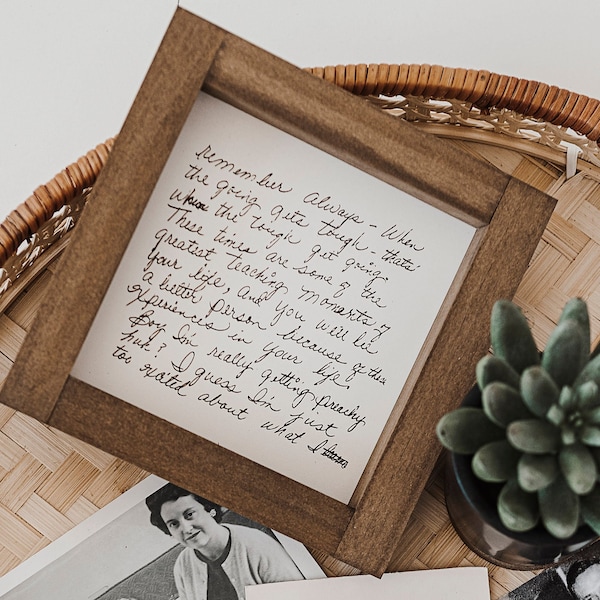 remember always - when
the going gets tough - thats
when the tough get going.
These times are some of the
greatest teaching moments of
your life, and you will be
a better person because of these
experiences in your life.
Boy I'm really getting preachy
huh? I guess I'm just
too excited about what I